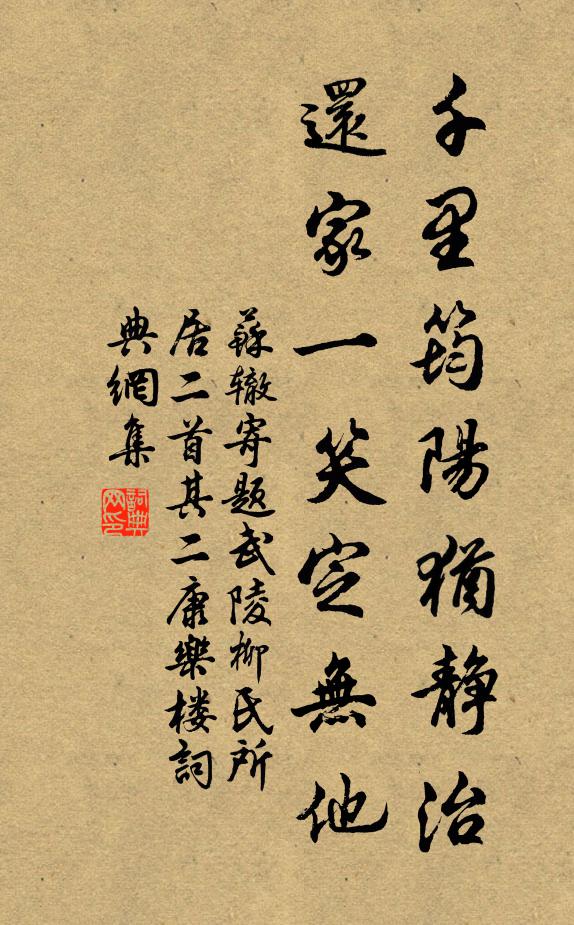 千里筠陽猶靜治
還家一笑定無他
蘇辙寄题武陵柳氏所
居二首其二康樂楼詞
典網集
詞典网印